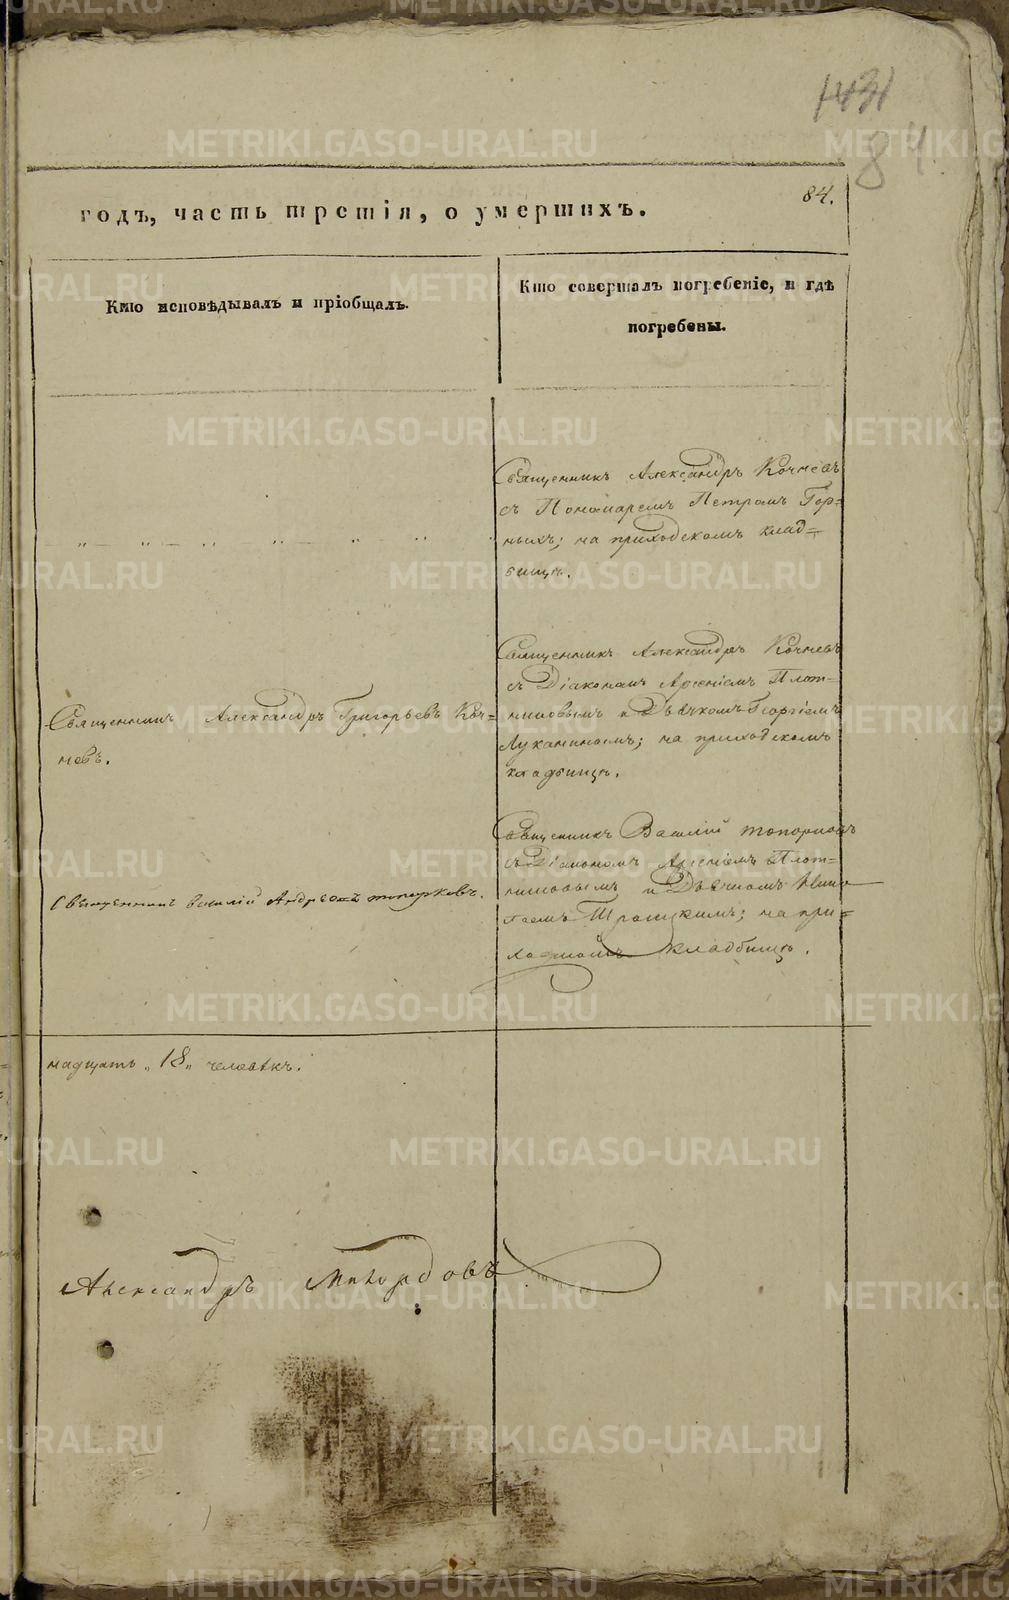 1431
84
84.
годъ, часть третія, о умершихъ.
Кто исповѣдывалъ и пріобщалъ.
Кто совершалъ погребеніе, и гдѣ
погребены.
Священникъ Александръ Кочневъ
съ Пономаремъ Петромъ Гор=
ныхъ; на приходскомъ клад=
бищѣ.
Священникъ Александръ Григорьевъ Коч=
невъ.
Священникъ Александръ Кочневъ
съ Діакономъ Арсеніемъ Плот=
никовымъ и Дьячкомъ Георгіемъ
Луканинымъ; на приходскомъ
кладбищѣ.
Священникъ Василій Андреевъ Топорковъ.
Священникъ Василій Топорковъ
съ Діакономъ Арсеніемъ Плот=
никовымъ и Дьячкомъ Нико
лаемъ Троицкимъ; на при=
ходскомъ кладбищѣ.
надцать „18„ человѣкъ.
Александръ
METRIKI.GASO-URAL.RU